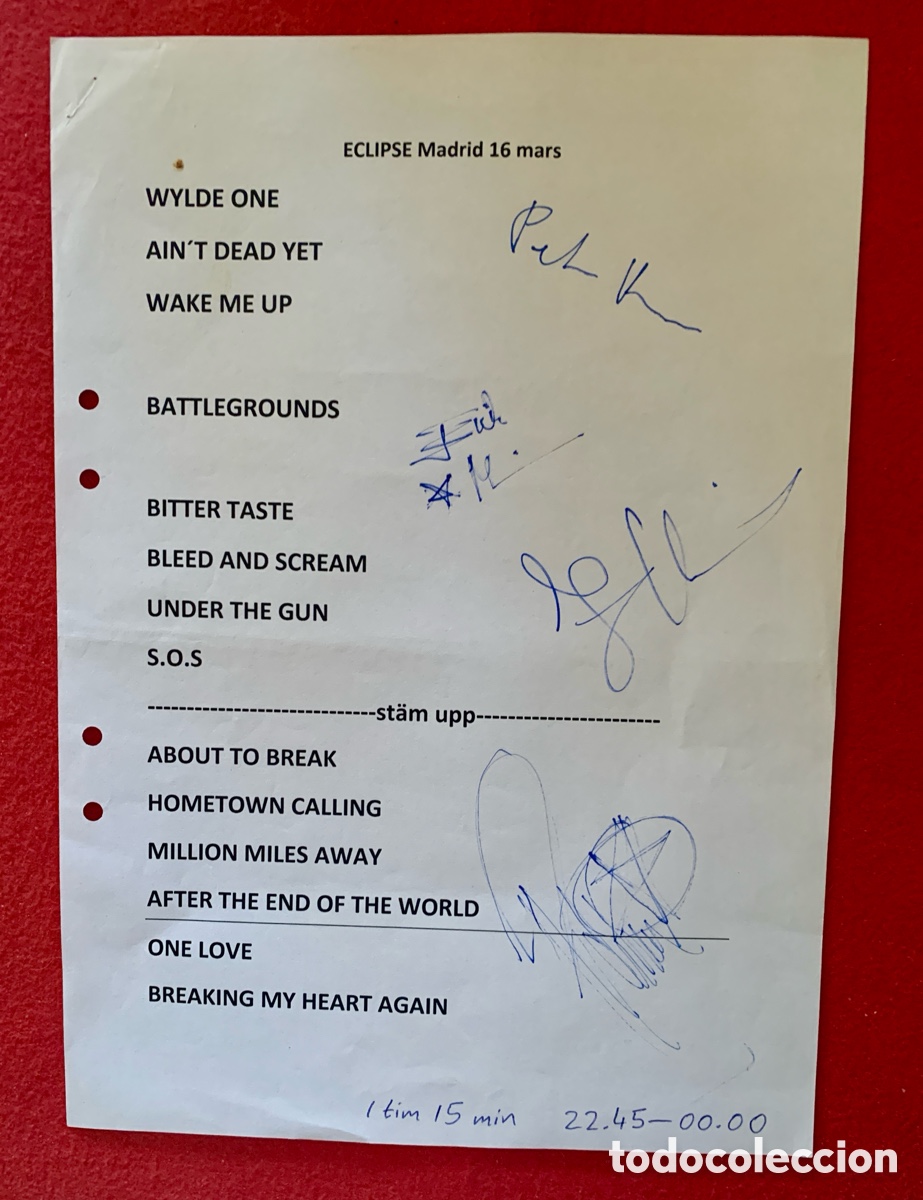 ECLIPSE Madrid 16 mars
WYLDE ONE
AIN´T DEAD YET
WAKE ME UP
BATTLEGROUNDS
BITTER TASTE
BLEED AND SCREAM
UNDER THE GUN
S.O.S
-----------------------------stäm upp-----------------------
ABOUT TO BREAK
HOMETOWN CALLING
MILLION MILES AWAY
AFTER THE END OF THE WORLD
ONE LOVE
BREAKING MY HEART AGAIN
1 tim 15 min 22.45-00.00
todocoleccion